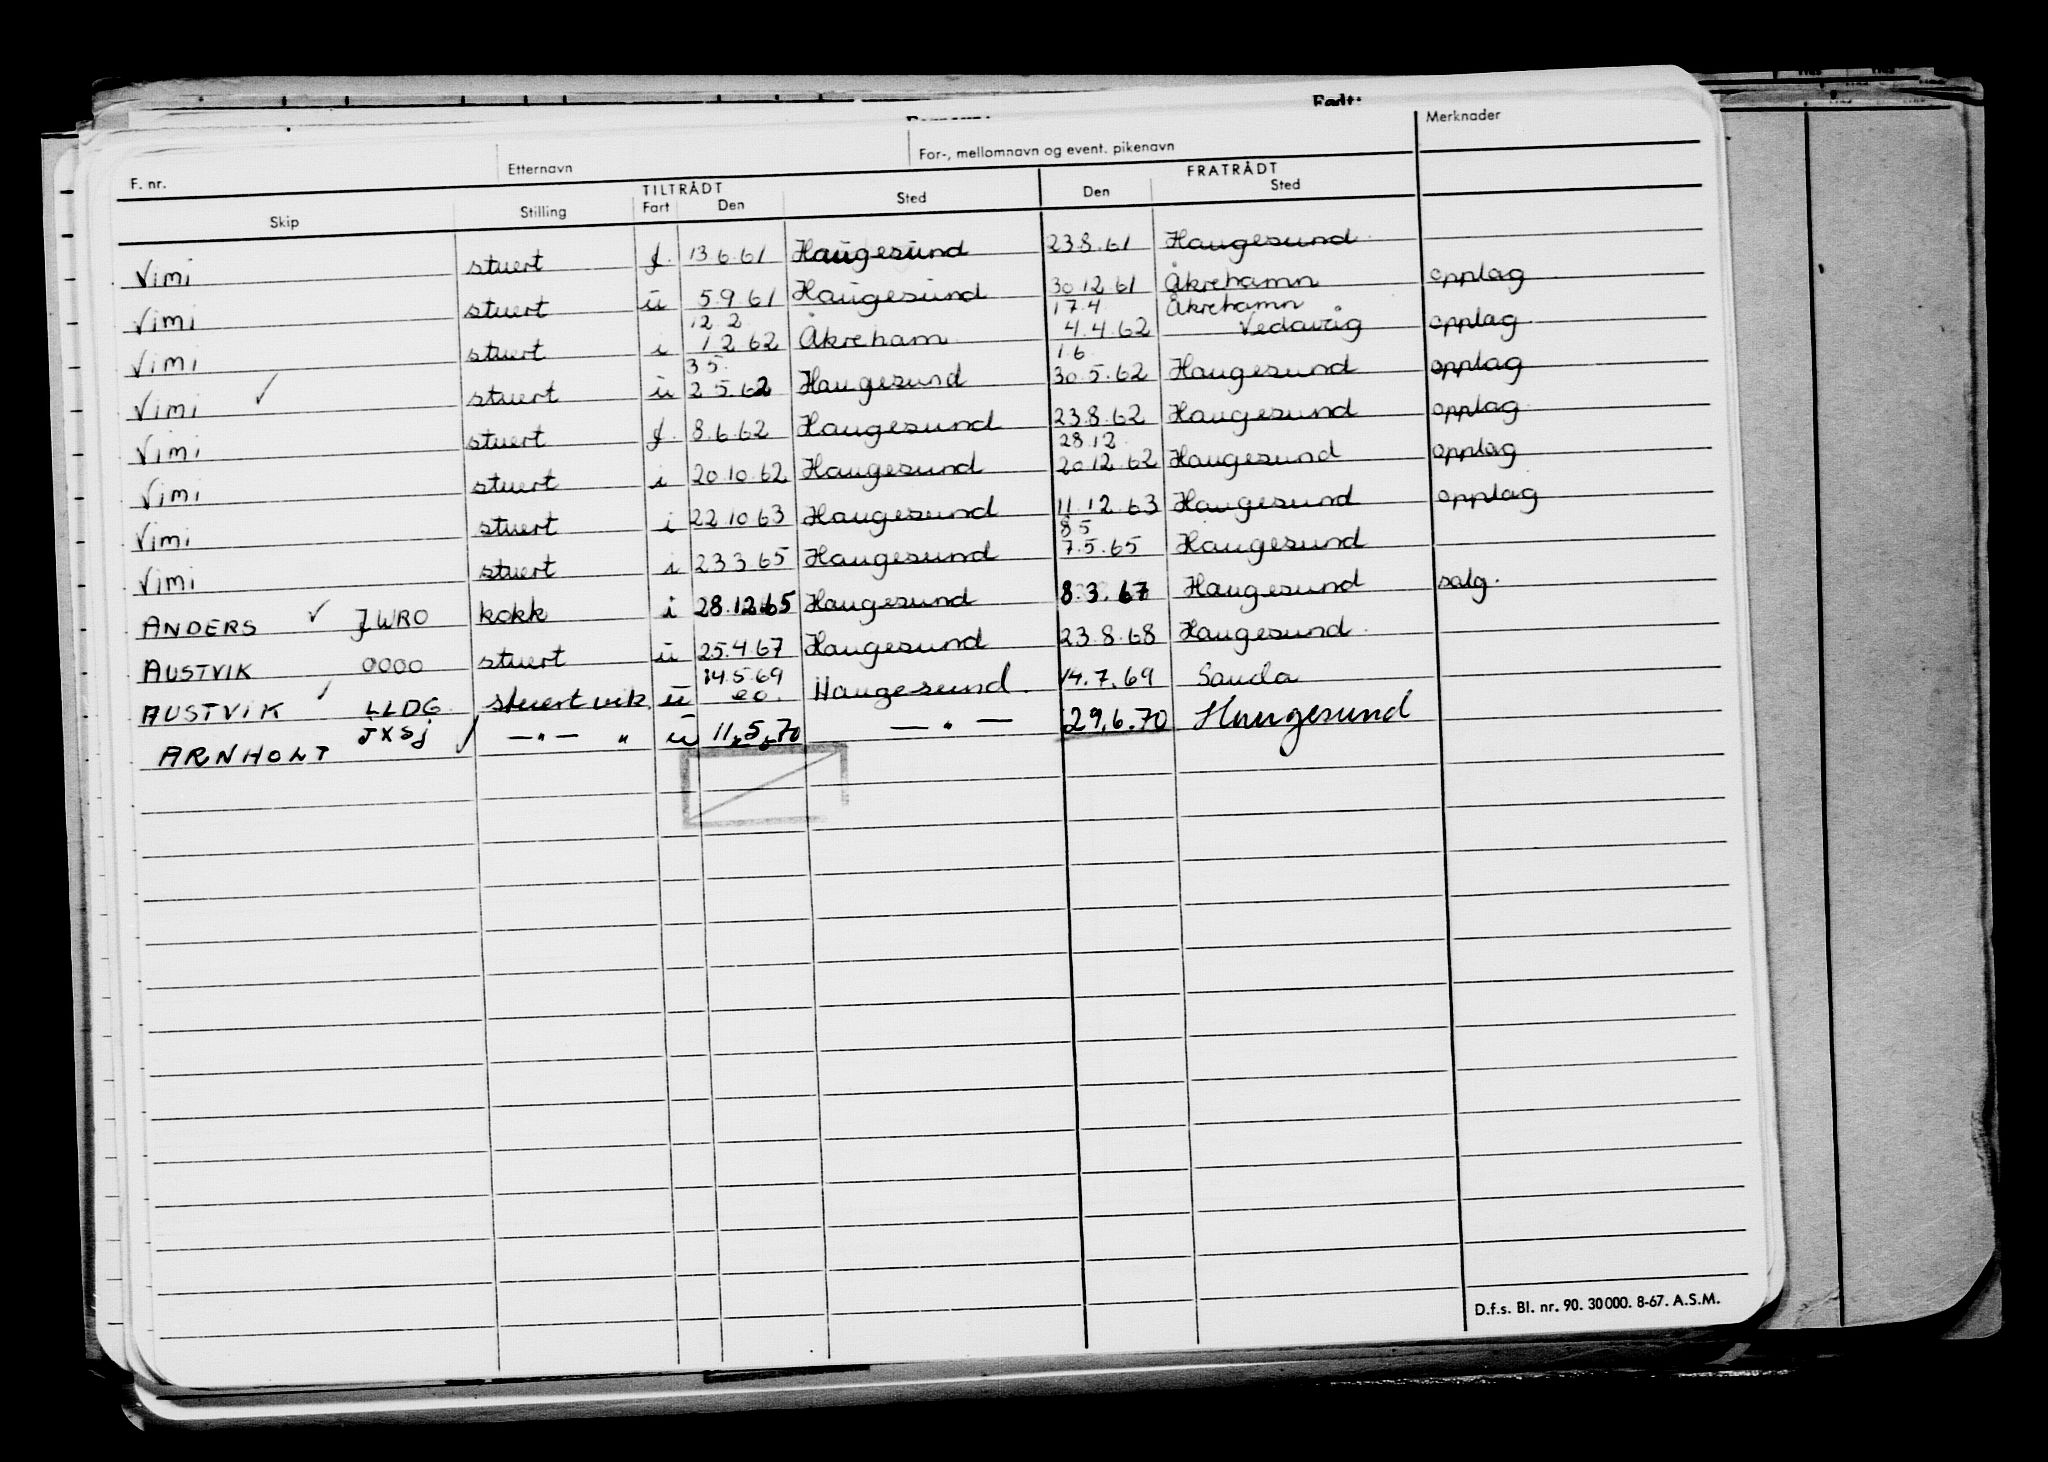 Født:
F. nr. Etternavn For-, mellomnavn og event. pikenavn Merknader
TILTRÅDT FRATRÅDT
Skip Stilling Fart Den Sted Den Sted
Vimi stuert f. 13.6.61 Haugesund 23.8.61 Haugesund
Vimi stuert u 5.9.61 Haugesund 30.12.61 Åkrehamn opplag
12.2 17.4 Åkrehamn
Vimi stuert i 1.2.62 Åkreham 4.4.62 Vedavåg opplag
3.5. 1.6.
Vimi ✓ stuert u 2.5.62 Haugesund 30.5.62 Haugesund opplag
Vimi stuert f. 8.6.62 Haugesund 23.8.62 Haugesund opplag
28.12.
Vimi stuert i 20.10.62 Haugesund 20.12.62 Haugesund opplag
Vimi stuert i 22.10.63 Haugesund 11.12.63 Haugesund opplag
8.5
Vimi stuert i 23.3.65 Haugesund 7.5.65 Haugesund
ANDERS ✓ JWRO kokk i 28.12.65 Haugesund 8.3.67 Haugesund salg.
AUSTVIK OOOO stuert u 25.4.67 Haugesund 23.8.68 Haugesund.
14.5.69
AUSTVIK ✓ LLDG stuert vik. u eo. Haugesund. 14.7.69 Sauda
ARNHOLT JXSJ ✓ —"— " u 11.5.70 — " — 29.6.70 Haugesund
D.f.s. Bl. nr. 90. 30000. 8-67. A.S.M.